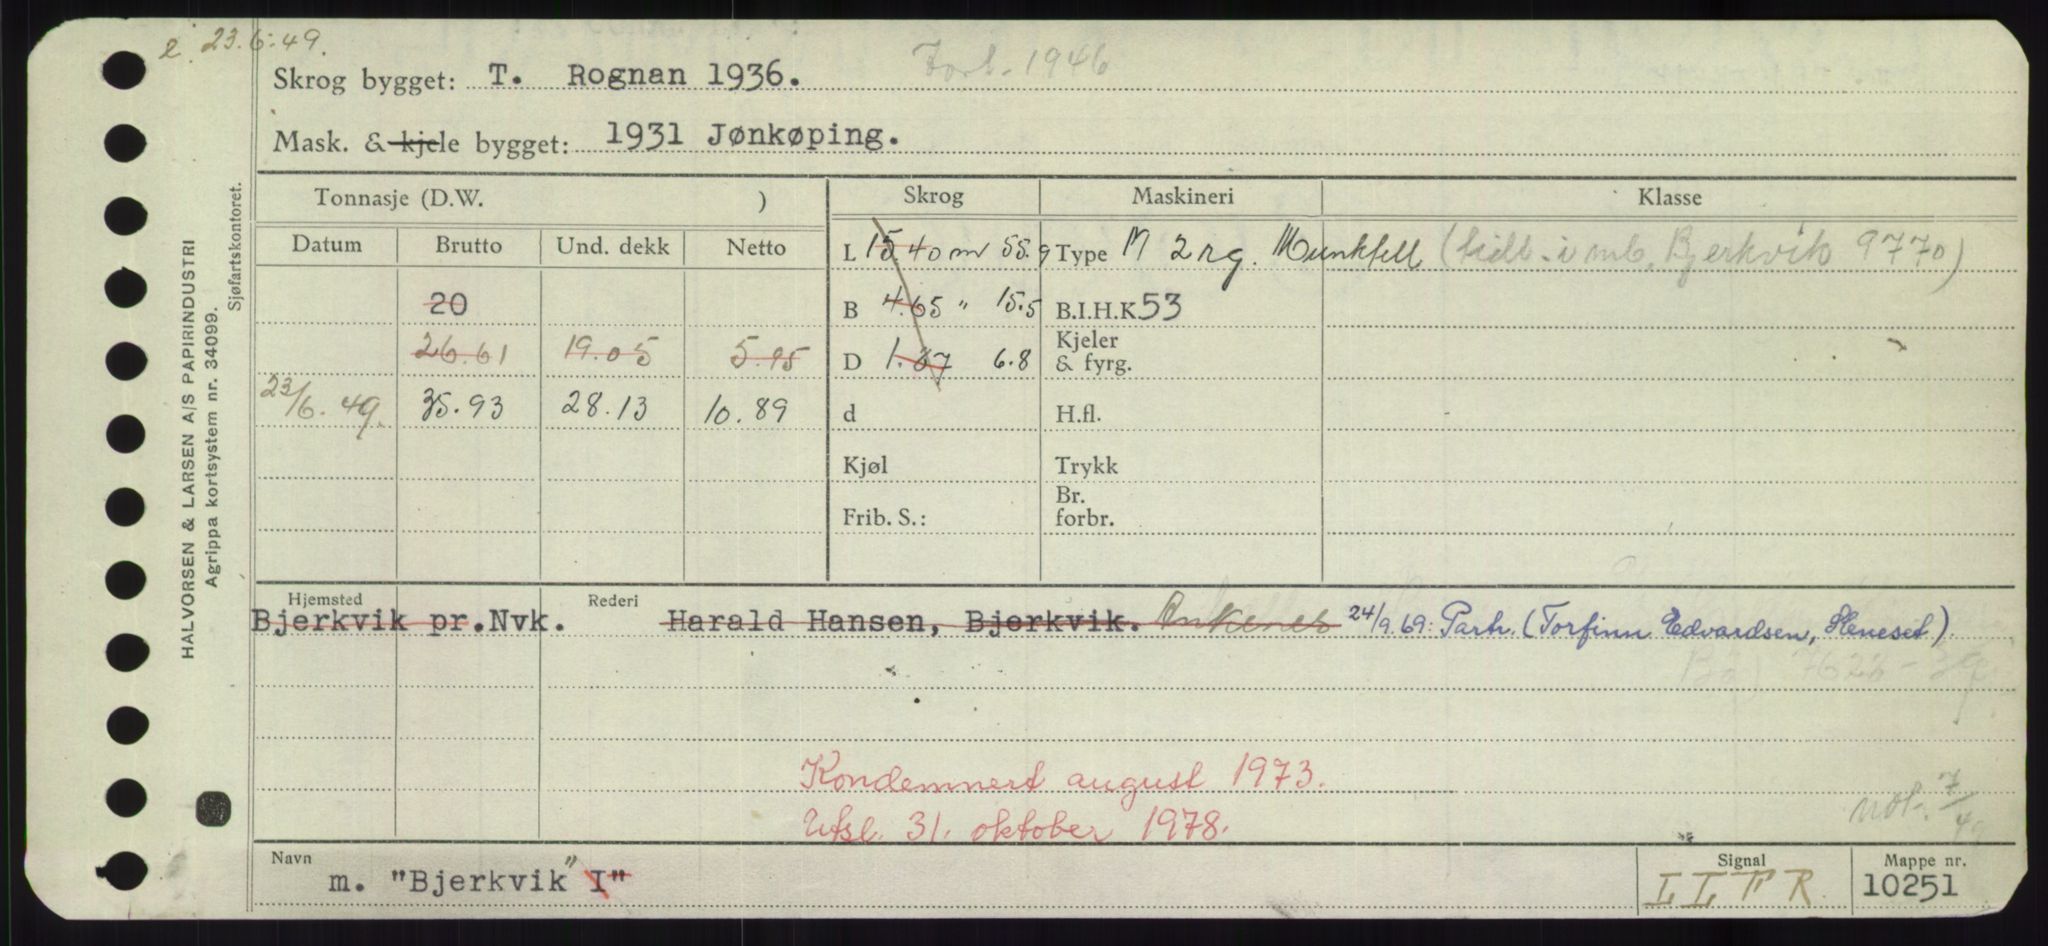 2. 23.6.49.
Skrog bygget: T. Rognan 1936. Forl. 1946
Mask. & kjele bygget: 1931 Jønkøping.
Tonnasje (D.W. ) Skrog Maskineri Klasse
Datum Brutto Und. dekk Netto L 15.40 m 55.9 Type M 2 rg. Munktell (tidl. i mb. Bjerkvik 9770)
20 B 4.65 " 15.5 B.I.H.K 53
26.61 19.05 5.95 D 1.37 6.8 Kjeler & fyrg.
23/6.49. 35.93 28.13 10.89 d H.fl.
Kjøl Trykk
Frib. S.: Br. forbr.
Hjemsted Rederi
Bjerkvik pr. Nvk. Harald Hansen, Bjerkvik. Ankenes 24/9.69: Partr. (Torfinn Edvardsen, Heneset).
Kondemnert august 1973.
Utsl. 31. oktober 1978.
not. 7/49
Navn Signal Mappe nr.
m. "Bjerkvik" I" LLTR. 10251
HALVORSEN & LARSEN A/S PAPIRINDUSTRI
Agrippa kortsystem nr. 34099.
Sjøfartskontoret.